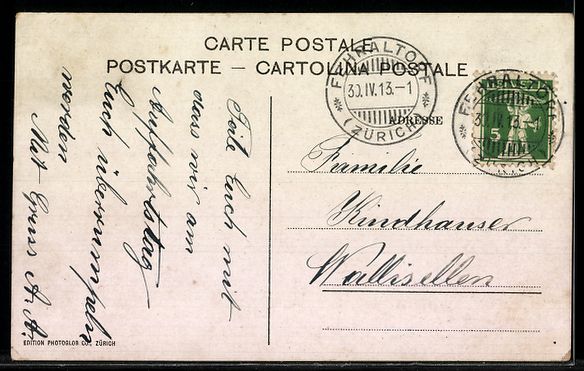 CARTE POSTALE
POSTKARTE — CARTOLINA POSTALE
FEHRALTORF
30.IV.13.-1
(ZÜRICH)
FEHRALTORF
30.IV.13.
5
ADRESSE
Familie
Kindhauser
Wallisellen
Teile Euch mit
dass wir am
Auffahrtstag
Euch
werden
Mit Gruss A. A.
EDITION PHOTOGLOB CO., ZÜRICH